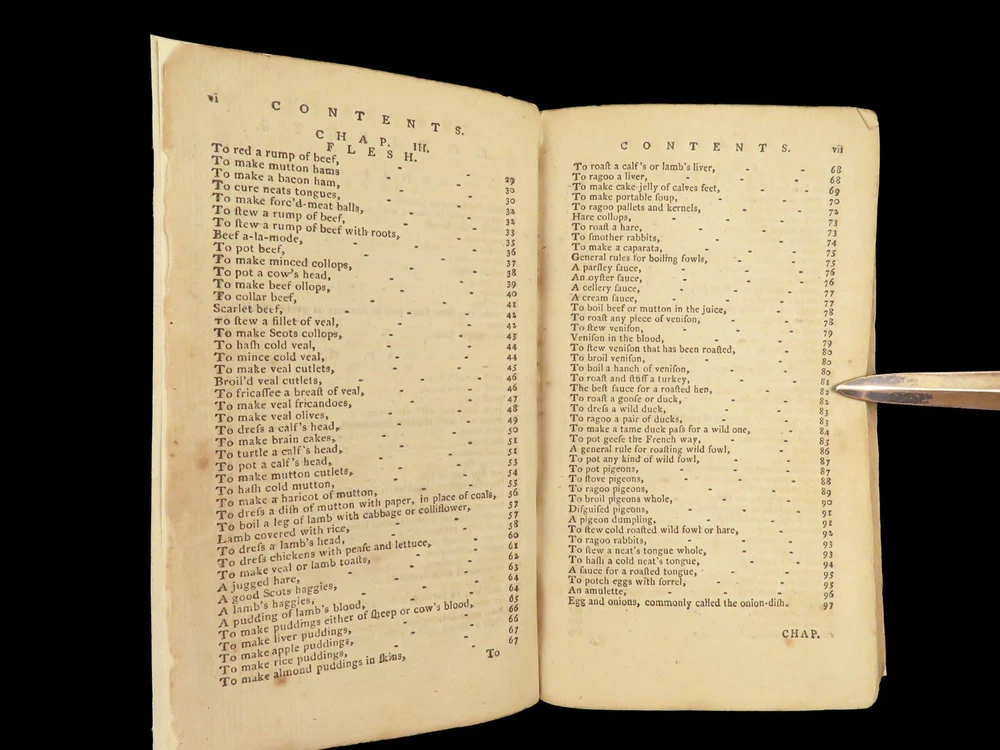 vi CONTENTS.
CHAP. III.
FLESH.
To red a rump of beef, - 29
To make mutton hams - 30
To make a bacon ham, - 30
To cure neats tongues, - 32
To make forc'd-meat balls, - 32
To ſtew a rump of beef, - 33
To ſtew a rump of beef with roots, - 35
Beef a-la-mode, - 36
To pot beef, - 37
To make minced collops, - 38
To pot a cow's head, - 39
To make beef ollops, - 40
To collar beef, - 41
Scarlet beef, - 42
To ſtew a fillet of veal, - 42
To make Scots collops, - 43
To haſh cold veal, - 44
To mince cold veal, - 44
To make veal cutlets, - 45
Broil'd veal cutlets, - 46
To fricaſſee a breaſt of veal, - 46
To make veal fricandoes, - 47
To make veal olives, - 48
To dreſs a calf's head, - 49
To make brain cakes, - 50
To turtle a calf's head, - 51
To pot a calf's head, - 51
To make mutton cutlets, - 53
To haſh cold mutton, - 54
To make a haricot of mutton, - 55
To dreſs a diſh of mutton with paper, in place of coals, 56
To boil a leg of lamb with cabbage or colliflower, 57
Lamb covered with rice, - 57
To dreſs a lamb's head, - 58
To dreſs chickens with peaſe and lettuce, - 60
To make veal or lamb toaſts, - 61
A jugged hare, - 62
A good Scots haggies, - 63
A lamb's haggies, - 64
A pudding of lamb's blood, - 64
To make puddings either of ſheep or cow's blood, 65
To make liver puddings, - 66
To make apple puddings, - 66
To make rice puddings, - 67
To make almond puddings in ſkins, - 67
To
CONTENTS. vii
To roaſt a calf's or lamb's liver, - 68
To ragoo a liver, - 68
To make cake-jelly of calves feet, - 69
To make portable ſoup, - 70
To ragoo pallets and kernels, - 72
Hare collops, - 73
To roaſt a hare, - 73
To ſmother rabbits, - 74
To make a caparata, - 75
General rules for boiling fowls, - 75
A parſley ſauce, - 76
An oyſter ſauce, - 76
A cellery ſauce, - 77
A cream ſauce, - 77
To boil beef or mutton in the juice, - 78
To roaſt any piece of veniſon, - 78
To ſtew veniſon, - 79
Veniſon in the blood, - 79
To ſtew veniſon that has been roaſted, - 80
To broil veniſon, - 80
To boil a hanch of veniſon, - 80
To roaſt and ſtuff a turkey, - 81
The beſt ſauce for a roaſted hen, - 82
To roaſt a gooſe or duck, - 82
To dreſs a wild duck, - 83
To ragoo a pair of ducks, - 83
To make a tame duck paſs for a wild one, - 84
To pot geeſe the French way, - 85
A general rule for roaſting wild fowl, - 86
To pot any kind of wild fowl, - 87
To pot pigeons, - 87
To ſtove pigeons, - 88
To ragoo pigeons, - 89
To broil pigeons whole, - 90
Diſguiſed pigeons, - 91
A pigeon dumpling, - 91
To ſtew cold roaſted wild fowl or hare, - 92
To ragoo rabbits, - 93
To ſtew a neat's tongue whole, - 93
To haſh a cold neat's tongue, - 94
A ſauce for a roaſted tongue, - 95
To potch eggs with ſorrel, - 95
An amulette, - 96
Egg and onions, commonly called the onion-diſh. 97
CHAP.